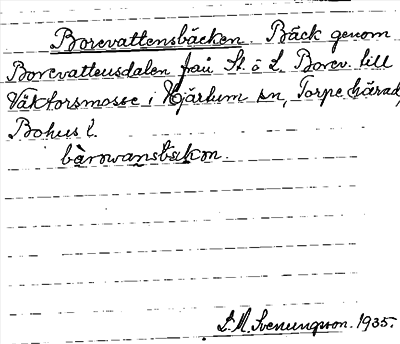 Borevattensbäcken. Bäck genom
Borevattensdalen från St. o L. Borev. till
Väktorsmosse i Hjärtum sn, Torpe härad,
Bohus l.
bàrowansbækon.
L.M. Svenungsson. 1935.